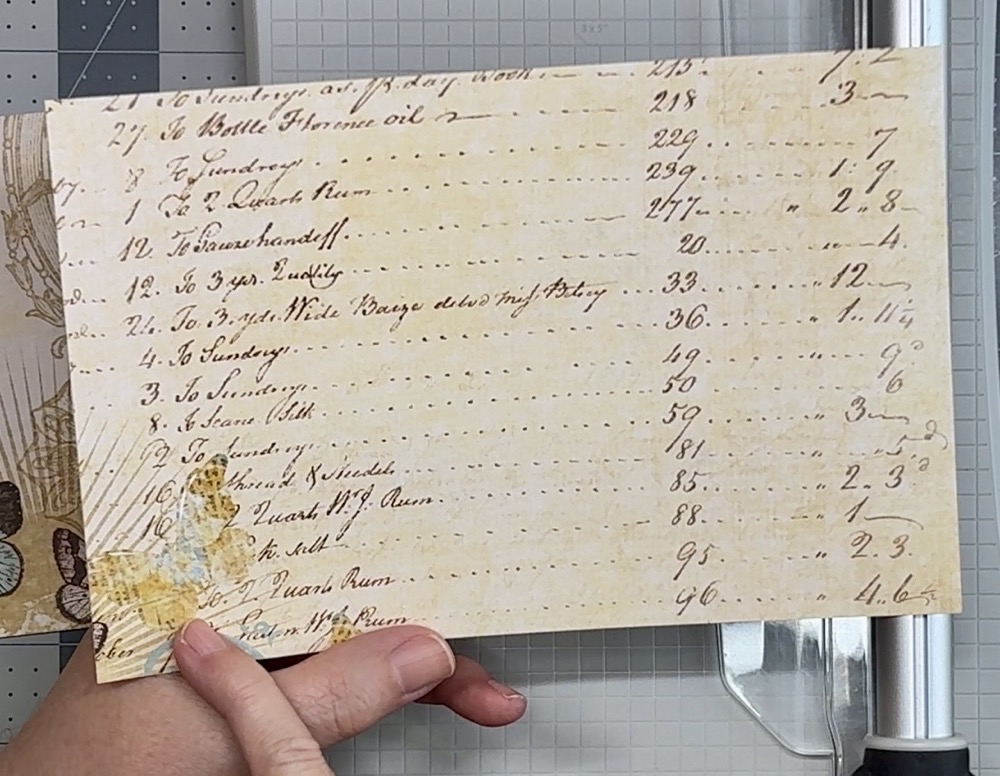 3x5"
21 To Sundrys as pr. day Book 215 7.2
27. To Bottle Florence oil 218 3
8 To Sundrys 229 7
1 To 2 Quarts Rum 239 1: 9
12. To Gauze handkff. 277 " 2 " 8
12. To 3 yds. Quality 20 4.
26. To 3. yds. Wide Baize deld Miss Betsy 33 12
4. To Sundrys. 36. " 1.. 11
3. To Sundrys 49. " 9d
8. To Scane Silk 50 6
12 To Sundrys 59 " 3
16 thread & Needels 81 5.d
16 2 Quarts W.I. Rum. 85. " 2. 3d
salt 88. " 1
To. 2 Quarts Rum 95 " 2. 3.
ober W.I. Rum 96 " 4.. 6